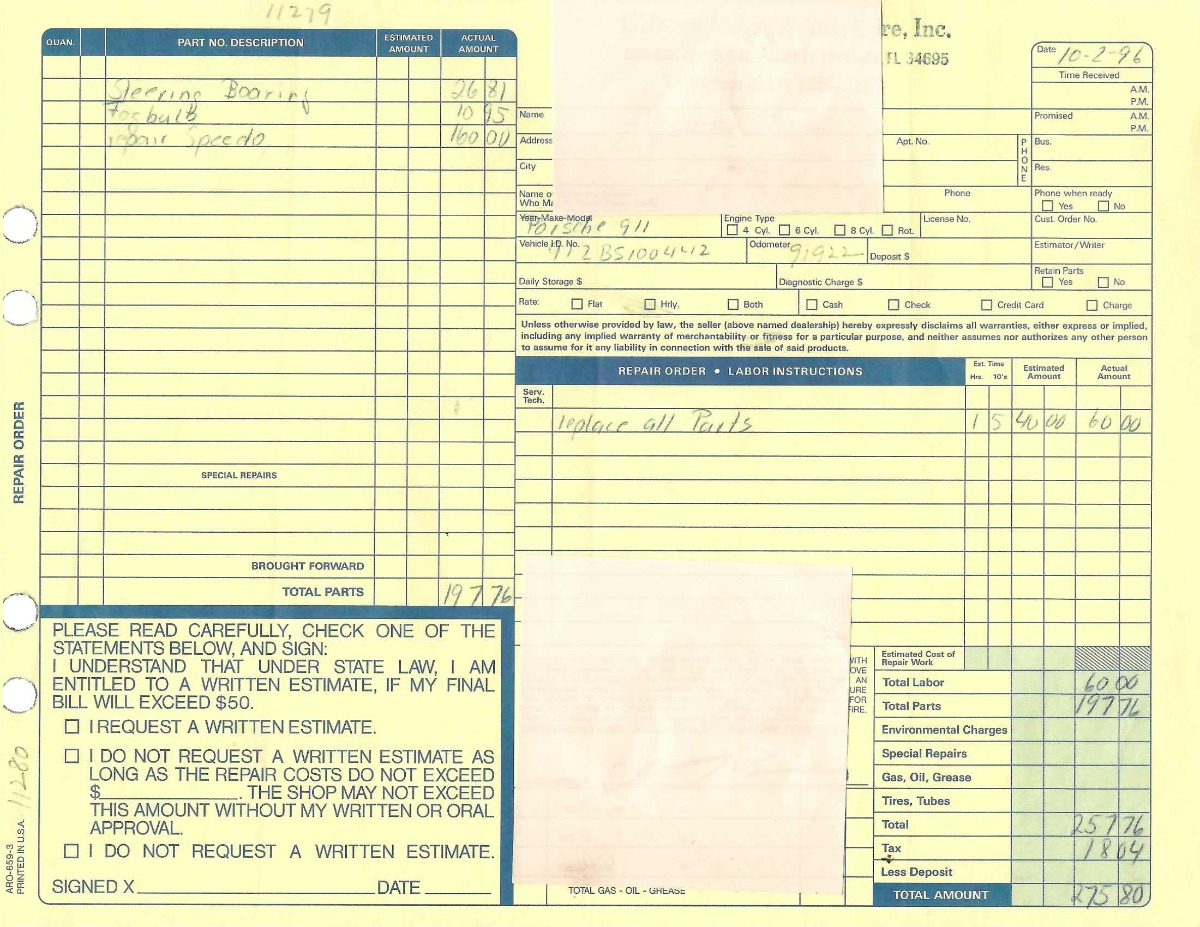 11279
re, Inc.
FL 34695
QUAN. PART NO. DESCRIPTION ESTIMATED AMOUNT ACTUAL AMOUNT
Steering Bearing 26 81
Fogbulb 10 95
repair Speedo 160 00
SPECIAL REPAIRS
BROUGHT FORWARD
TOTAL PARTS 197 76
Date 10-2-96
Time Received
A.M.
P.M.
Promised A.M.
P.M.
Name
Address Apt. No. PHONE Bus.
City Res.
Name o
Who Ma
Phone
Phone when ready
Yes No
Year-Make-Model Porsche 911
Engine Type
4 Cyl. 6 Cyl. 8 Cyl. Rot.
License No.
Cust. Order No.
Vehicle I.D. No. 912BS100442
Odometer 91922
Deposit $
Estimator/Writer
Daily Storage $ Diagnostic Charge $
Retain Parts
Yes No
Rate: Flat Hrly. Both Cash Check Credit Card Charge
Unless otherwise provided by law, the seller (above named dealership) hereby expressly disclaims all warranties, either express or implied,
including any implied warranty of merchantability or fitness for a particular purpose, and neither assumes nor authorizes any other person
to assume for it any liability in connection with the sale of said products.
REPAIR ORDER • LABOR INSTRUCTIONS
Est. Time
Hrs. 10's
Estimated Amount
Actual Amount
Serv. Tech.
replace all Parts 1 5 40 00 60 00
PLEASE READ CAREFULLY, CHECK ONE OF THE
STATEMENTS BELOW, AND SIGN:
I UNDERSTAND THAT UNDER STATE LAW, I AM
ENTITLED TO A WRITTEN ESTIMATE, IF MY FINAL
BILL WILL EXCEED $50.
I REQUEST A WRITTEN ESTIMATE.
I DO NOT REQUEST A WRITTEN ESTIMATE AS
LONG AS THE REPAIR COSTS DO NOT EXCEED
$____________. THE SHOP MAY NOT EXCEED
THIS AMOUNT WITHOUT MY WRITTEN OR ORAL
APPROVAL.
I DO NOT REQUEST A WRITTEN ESTIMATE.
SIGNED X DATE
WITH
OVE
AN
URE
FOR
FIRE.
TOTAL GAS - OIL - GREASE
Estimated Cost of
Repair Work
Total Labor 60 00
Total Parts 197 76
Environmental Charges
Special Repairs
Gas, Oil, Grease
Tires, Tubes
Total 257 76
Tax 18 04
Less Deposit
TOTAL AMOUNT 275 80
REPAIR ORDER
11280
ARO-659-3
PRINTED IN U.S.A.